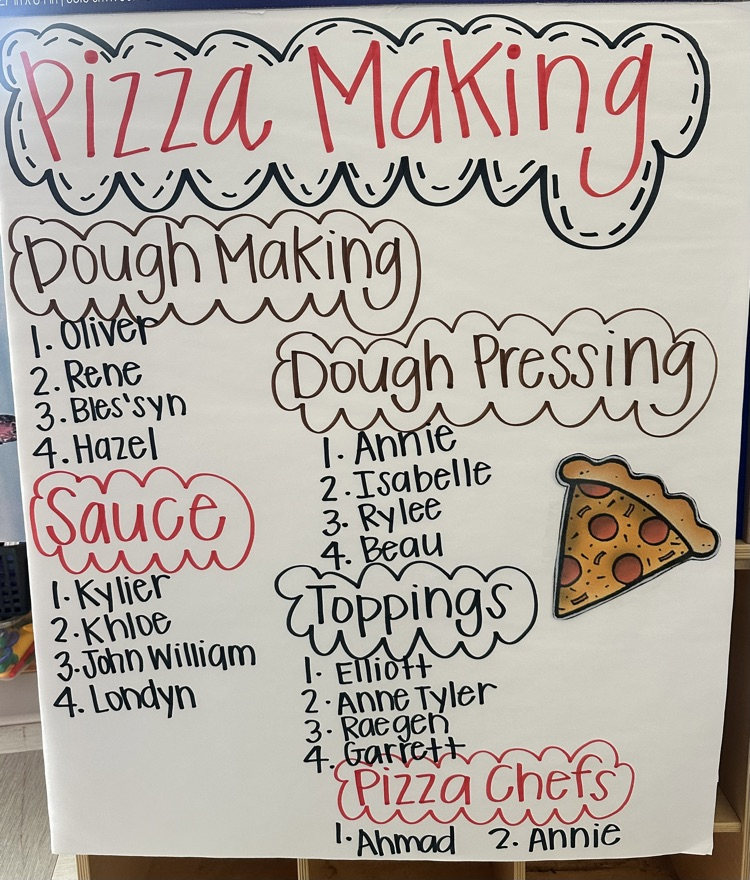 Pizza Making
Dough Making
1. Oliver
2. Rene
3. Bles'syn
4. Hazel
Dough Pressing
1. Annie
2. Isabelle
3. Rylee
4. Beau
Sauce
1. Kylier
2. Khloe
3. John William
4. Londyn
Toppings
1. Elliott
2. Anne Tyler
3. Raegen
4. Garrett
Pizza Chefs
1. Ahmad 2. Annie